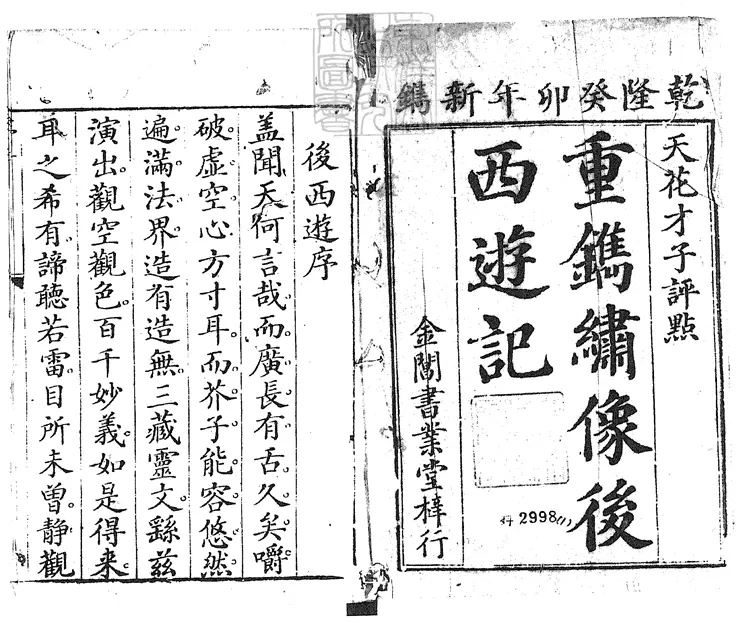 乾隆癸卯年新鐫
天花才子評點
重鐫繡像後
西遊記
金閶書業堂梓行
2998(1)
後西遊序
盖聞天何言哉。而廣長有舌久矣。嚼
破虛空。心方寸耳。而芥子能容。悠然
遍滿。法界造有造無。三藏靈文。繇茲
演出。觀空觀色。百千妙義。如是得来。
耳之希有。諦聽若雷。目所未曾。静觀